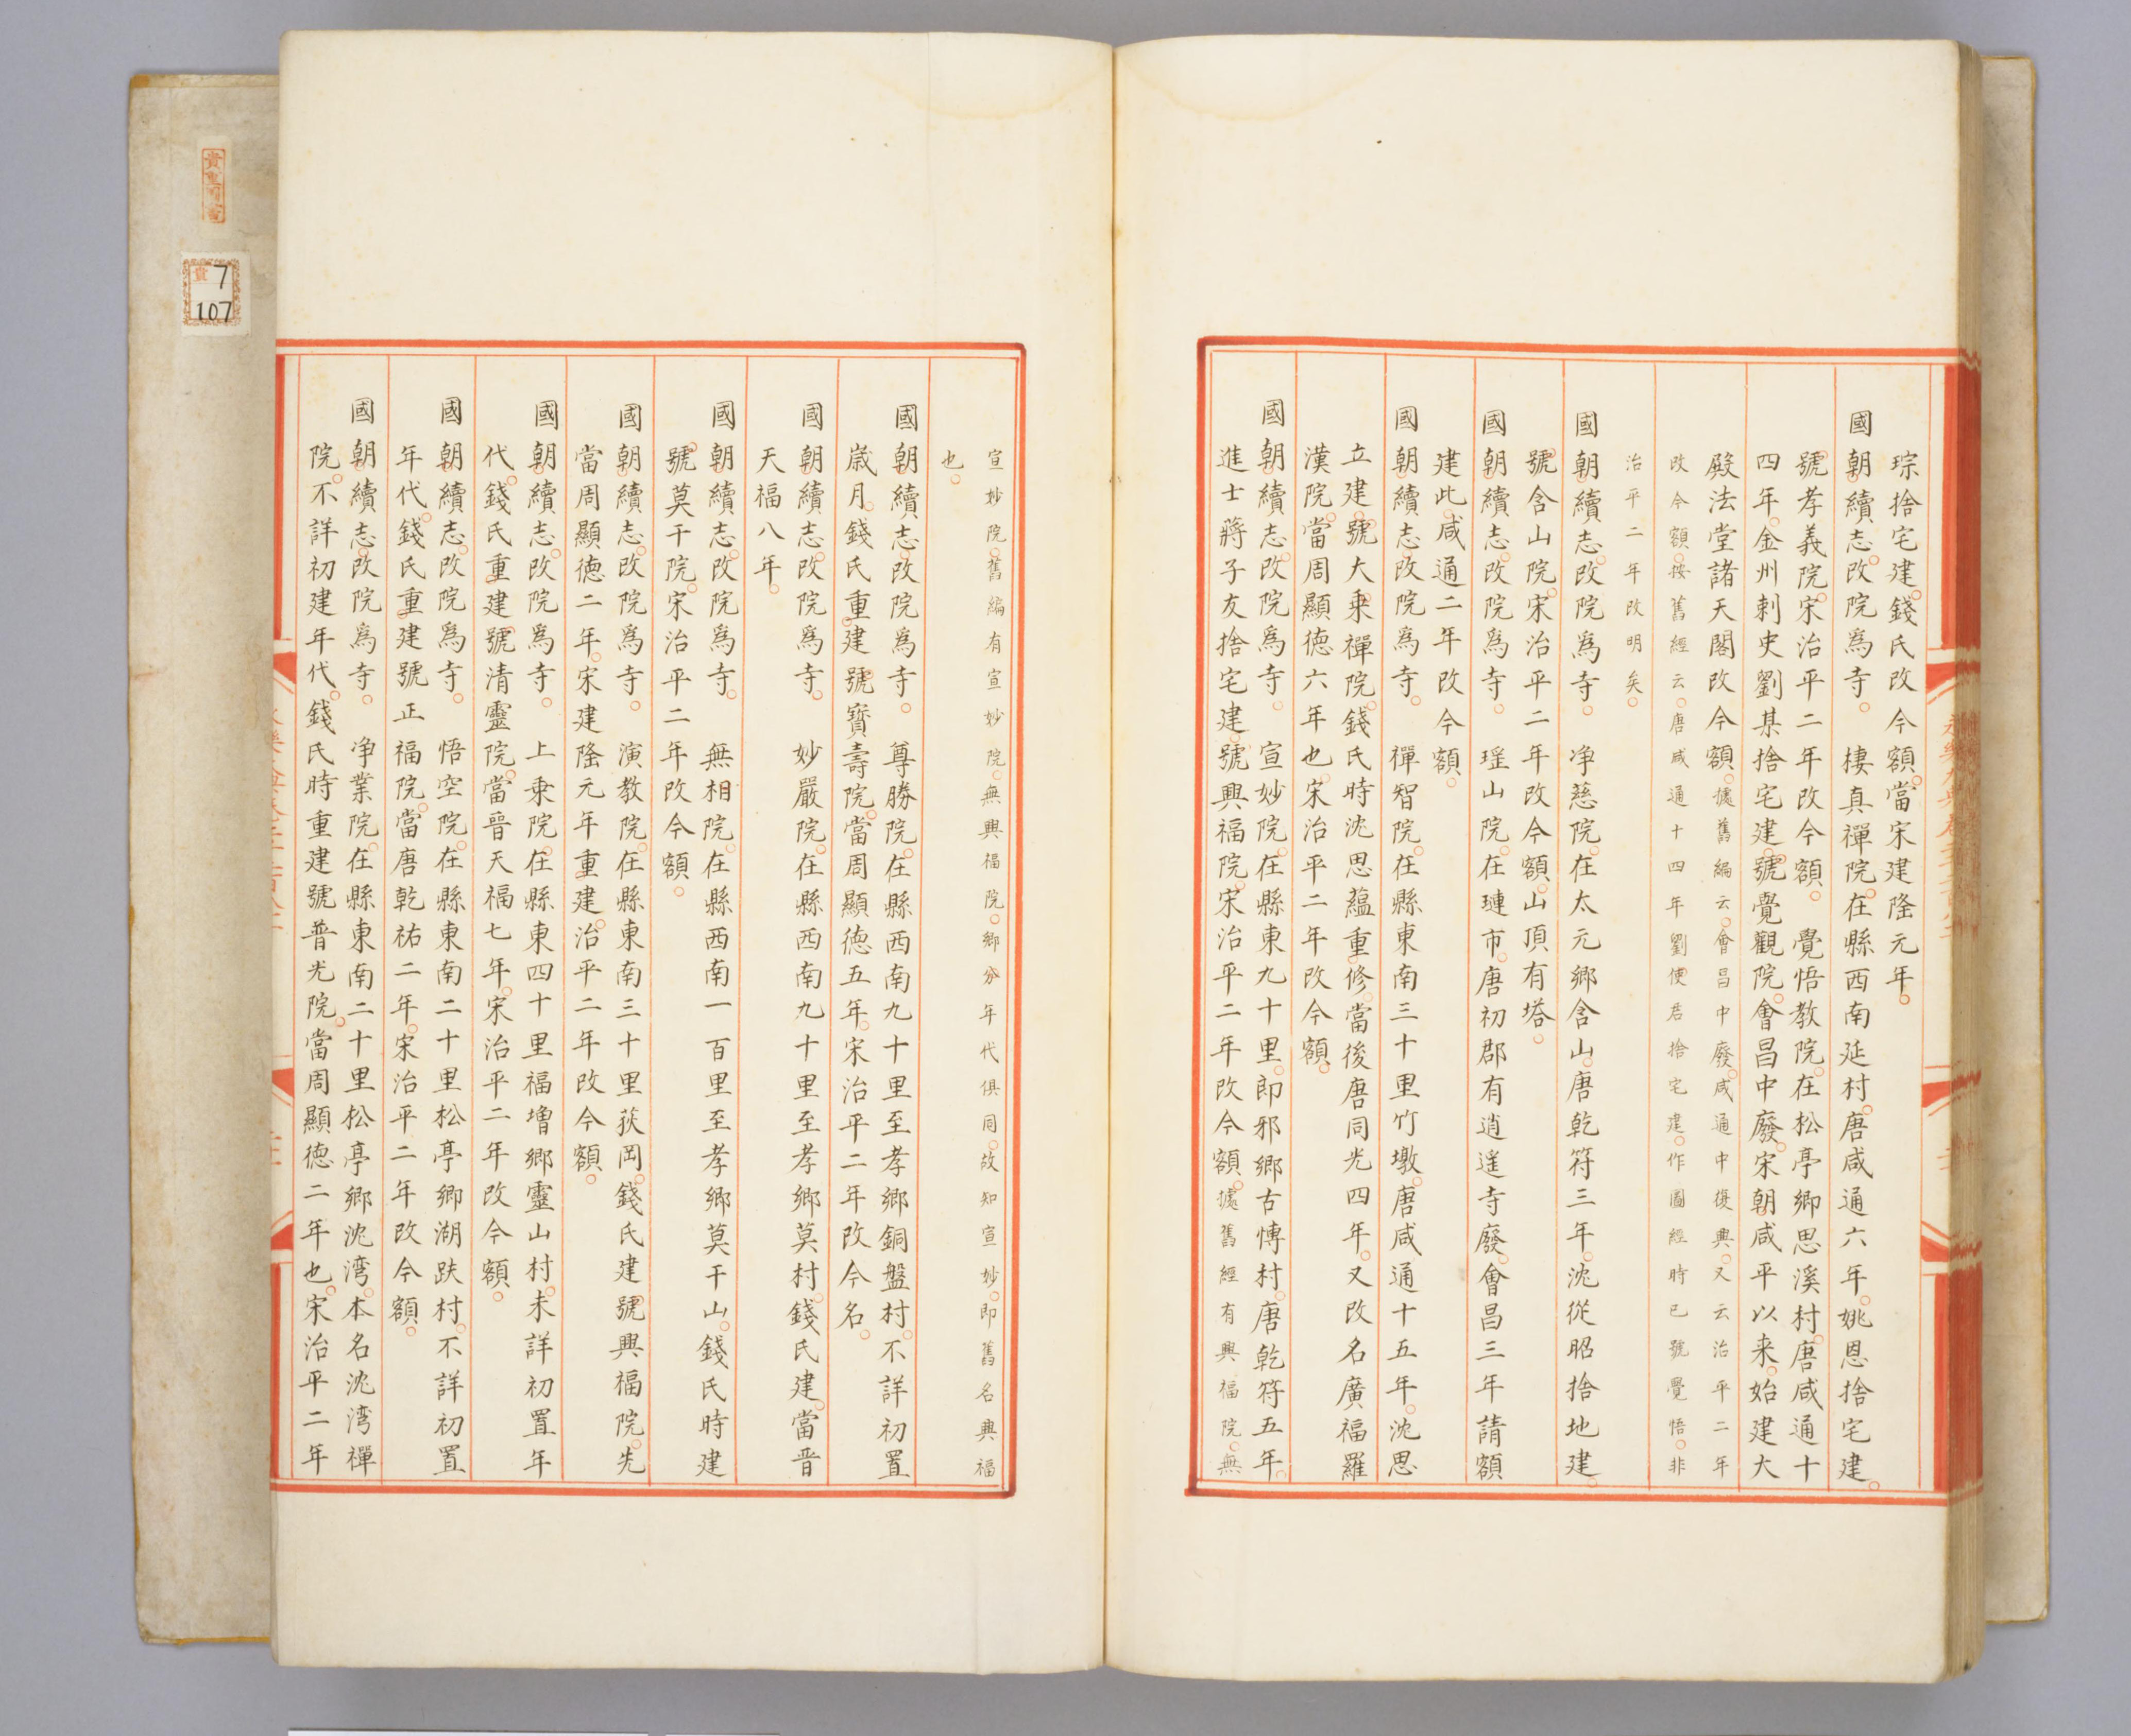 琮捨宅建錢氏改今額當宋建隆元年
國朝續志改院爲寺 棲真禪院在縣西南延村唐咸通六年姚恩捨宅建
號孝義院宋治平二年改今額 覺悟教院在松亭鄉思溪村唐咸通十
四年金州刺史劉某捨宅建號覺觀院會昌中廢宋朝咸平以来始建大
殿法堂諸天閣改今額據舊編云會昌中廢咸通中復興又云治平二年
改今額按舊經云唐咸通十四年劉使君捨宅建作圖經時已號覺悟非
治平二年改明矣
國朝續志改院爲寺 净慈院在太元鄉含山唐乾符三年沈從昭捨地建
號含山院宋治平二年改今額山頂有塔
國朝續志改院爲寺 瑶山院在璉市唐初郡有逍遥寺廢會昌三年請額
建此咸通二年改今額
國朝續志改院爲寺 禪智院在縣東南三十里竹墩唐咸通十五年沈思
立建號大乗禪院錢氏時沈思蘊重修當後唐同光四年又改名廣福羅
漢院當周顯徳六年也宋治平二年改今額
國朝續志改院爲寺 宣妙院在縣東九十里即邪鄉古慱村唐乾符五年
進士蔣子友捨宅建號興福院宋治平二年改今額據舊經有興福院無
宣妙院舊編有宣妙院無興福院鄉分年代俱同故知宣妙即舊名興福
也
國朝續志改院爲寺 尊勝院在縣西南九十里至孝鄉銅盤村不詳初置
歲月錢氏重建號寶壽院當周顯徳五年宋治平二年改今名
國朝續志改院爲寺 妙嚴院在縣西南九十里至孝鄉莫村錢氏建當晋
天福八年
國朝續志改院爲寺 無相院在縣西南一百里至孝鄉莫干山錢氏時建
號莫干院宋治平二年改今額
國朝續志改院爲寺 演教院在縣東南三十里荻岡錢氏建號興福院先
當周顯徳二年宋建隆元年重建治平二年改今額
國朝續志改院爲寺 上乗院在縣東四十里福增鄉靈山村未詳初置年
代錢氏重建號清靈院當晋天福七年宋治平二年改今額
國朝續志改院爲寺 悟空院在縣東南二十里松亭鄉湖趺村不詳初置
年代錢氏重建號正福院當唐乾祐二年宋治平二年改今額
國朝續志改院爲寺 净業院在縣東南二十里松亭鄉沈湾本名沈湾禪
院不詳初建年代錢氏時重建號普光院當周顯徳二年也宋治平二年
貴
7
107